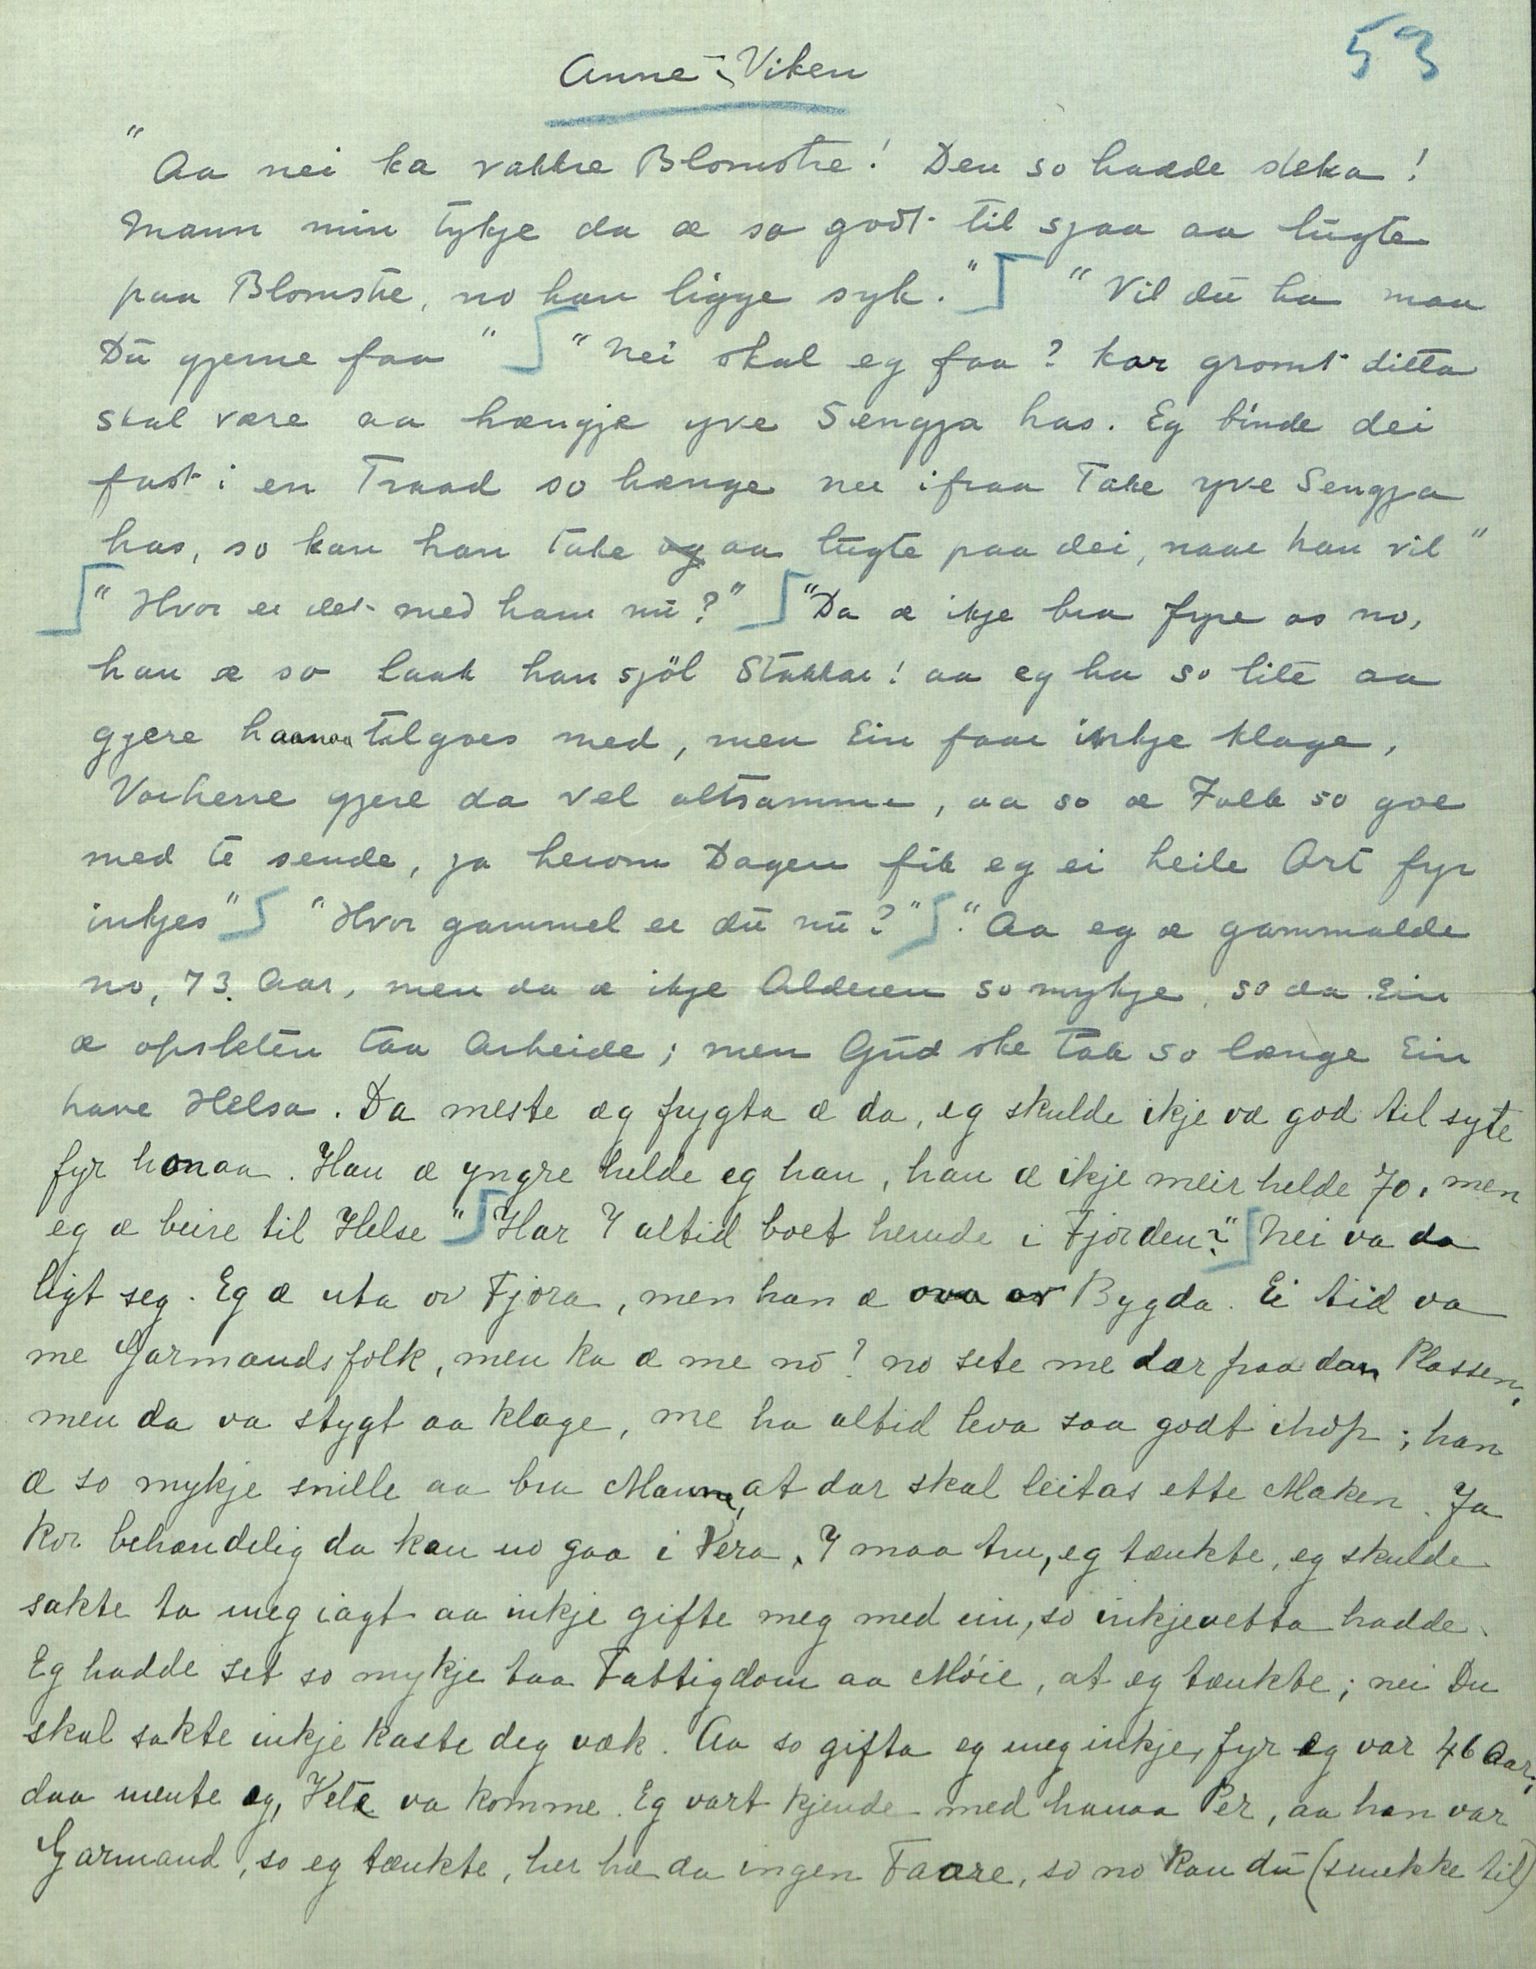 53
Anne i Viken
"Aa nei ka vakkre Blomstre! Den so hadde sleka!
Mann min tykje da æ so godt til sjaa aa lugte
paa Blomstre, no han ligge syk." "Vil du ha maa
Du gjerne faa" "Nei skal eg faa? kor gromt ditta
skal være aa hængje yve Sengja has. Eg binde dei
fast i en Traad so hænge ne ifraa Take yve Sengja
has, so kan han take og aa lugte paa dei, naar han vil"
"Hvor er det med ham nu?" "Da æ ikje bra fyre os no,
han æ so laak han sjöl Stakkar! aa eg ha so lite aa
gjere haanaa tilgoes med, men Ein faar inkje klage,
Vorherre gjere da vel altsamma, aa so æ Folk so goe
med te sende, ja herom Dagen fik eg ei heile Ort fyr
inkjes" "Hvor gammel er du nu?" "Aa eg æ gammalde
no, 73 Aar, men da æ ikje Alderen so mykje, so da Ein
æ opsleten taa Arbeide; men Gud ske Tak so længe Ein
have Helsa. Da meste æg frygta æ da, eg skulde ikje væ god til syte
fyr honaa. Han æ yngre helde eg han, han æ ikje meir helde 70, men
eg æ beire til Helse" "Har I altid boet herude i Fjorden?" Nei va da
ligt seg. Eg æ uta ov Fjora, men han æ ova ov Bygda. Ei tid va
me Garmandsfolk, men ka æ me no? no sete me dær paa dan Plassen,
men da va stygt aa klage, me ha altid leva saa godt ihop; han
æ so mykje snille aa bra Manne, at dar skal leitas ette Maken. Ja
kor behændelig da kan no gaa i Vera, I maa tru, eg tænkte, eg skulde
sakte ta meg iagt aa inkje gifte meg med ein, so inkjevetta hadde.
Eg hadde set so mykje taa Fattigdom aa Møie, at eg tænkte; nei Du
skal sakte inkje kaste deg væk. Aa so gifta eg meg inkje, fyr eg var 46 Aar,
daa mente eg, Vete va komme. Eg vart kjende med hanaa Per, aa han var
Garmand, so eg tænkte, her hæ da ingen Faare, so no kan du (smekke til)